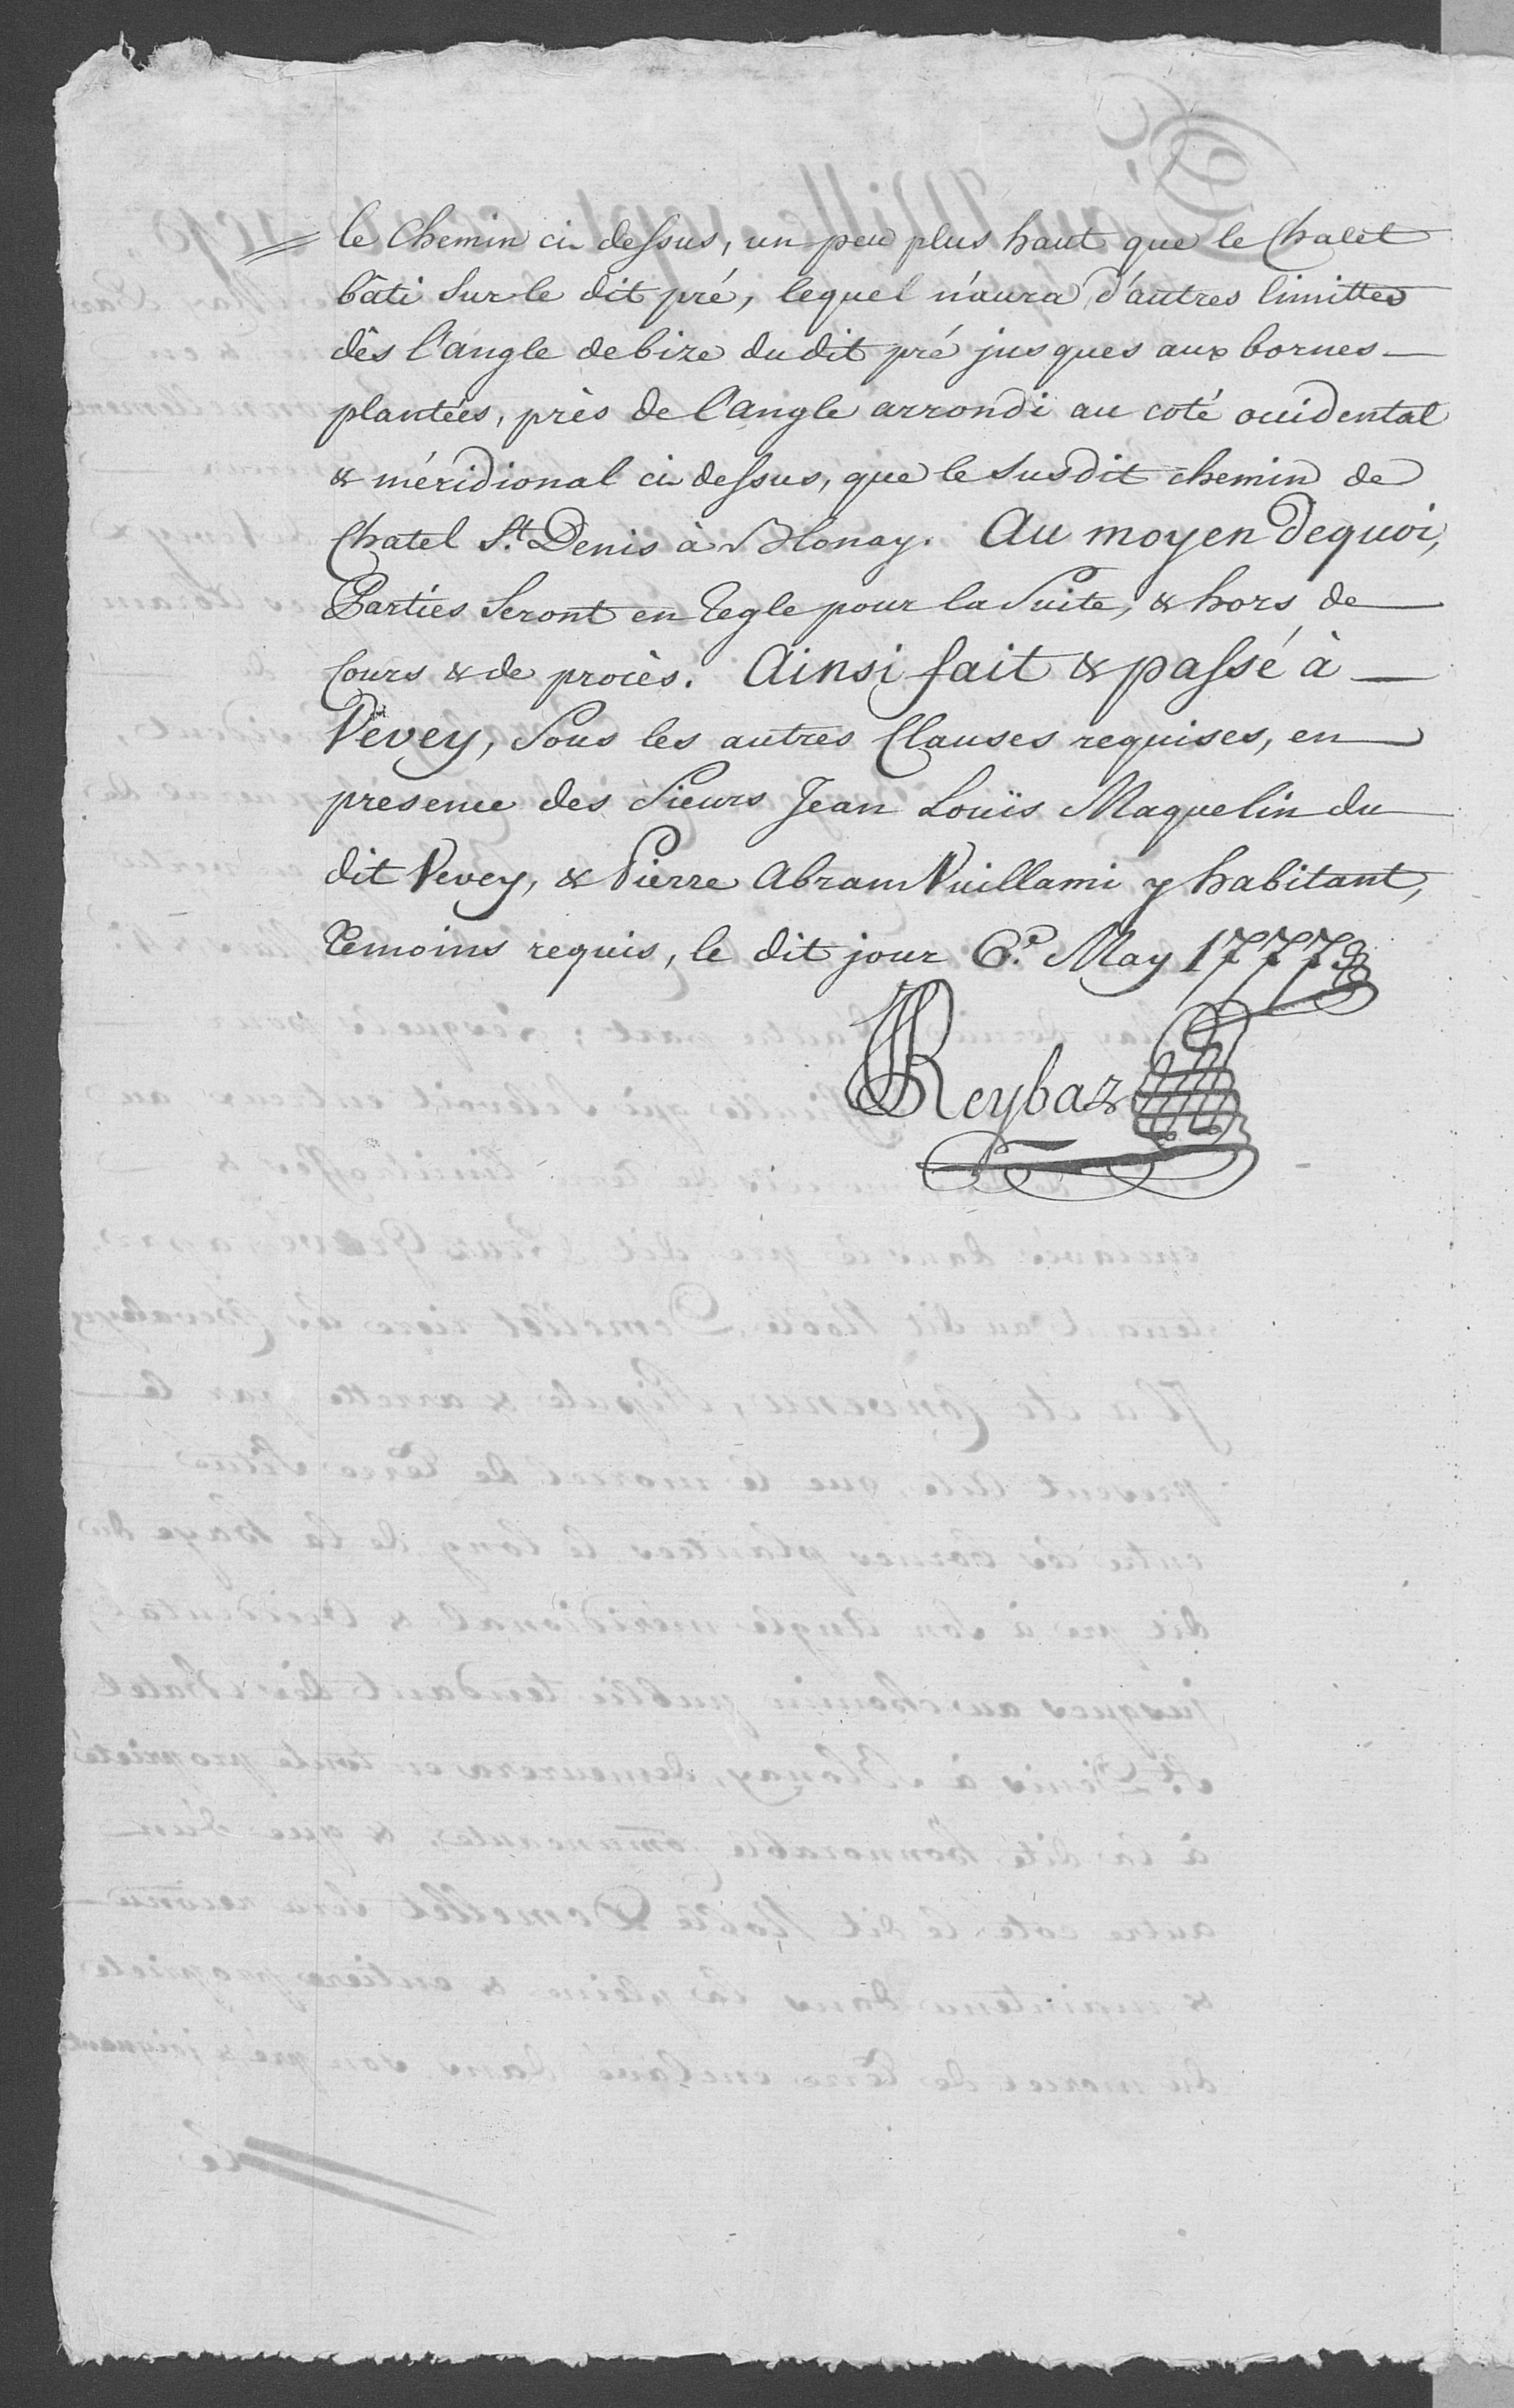 le Chemin ci dessus, un peu plus haut que le Chalet
bâti Sur le dit pré, lequel n'aura d'autres limittes
dês l'angle de bize du dit pré jusques aux bornes
plantées, près de l'angle arrondi au coté occidental
& méridional ci dessus, que le susdit chemin de
Chatel St. Denis à Blonay. Au moyen dequoi,
Parties Seront en Regle pour la Suite, & hors de
Cours & de procès. Ainsi fait & passé à
Vevey, Sous les autres Clauses requises, en
presence des Sieurs Jean Louïs Maquelin du
dit Vevey, & Pierre Abram Vuillami y habitant,
Temoins requis, le dit jour 6e. May 1777
Reybaz